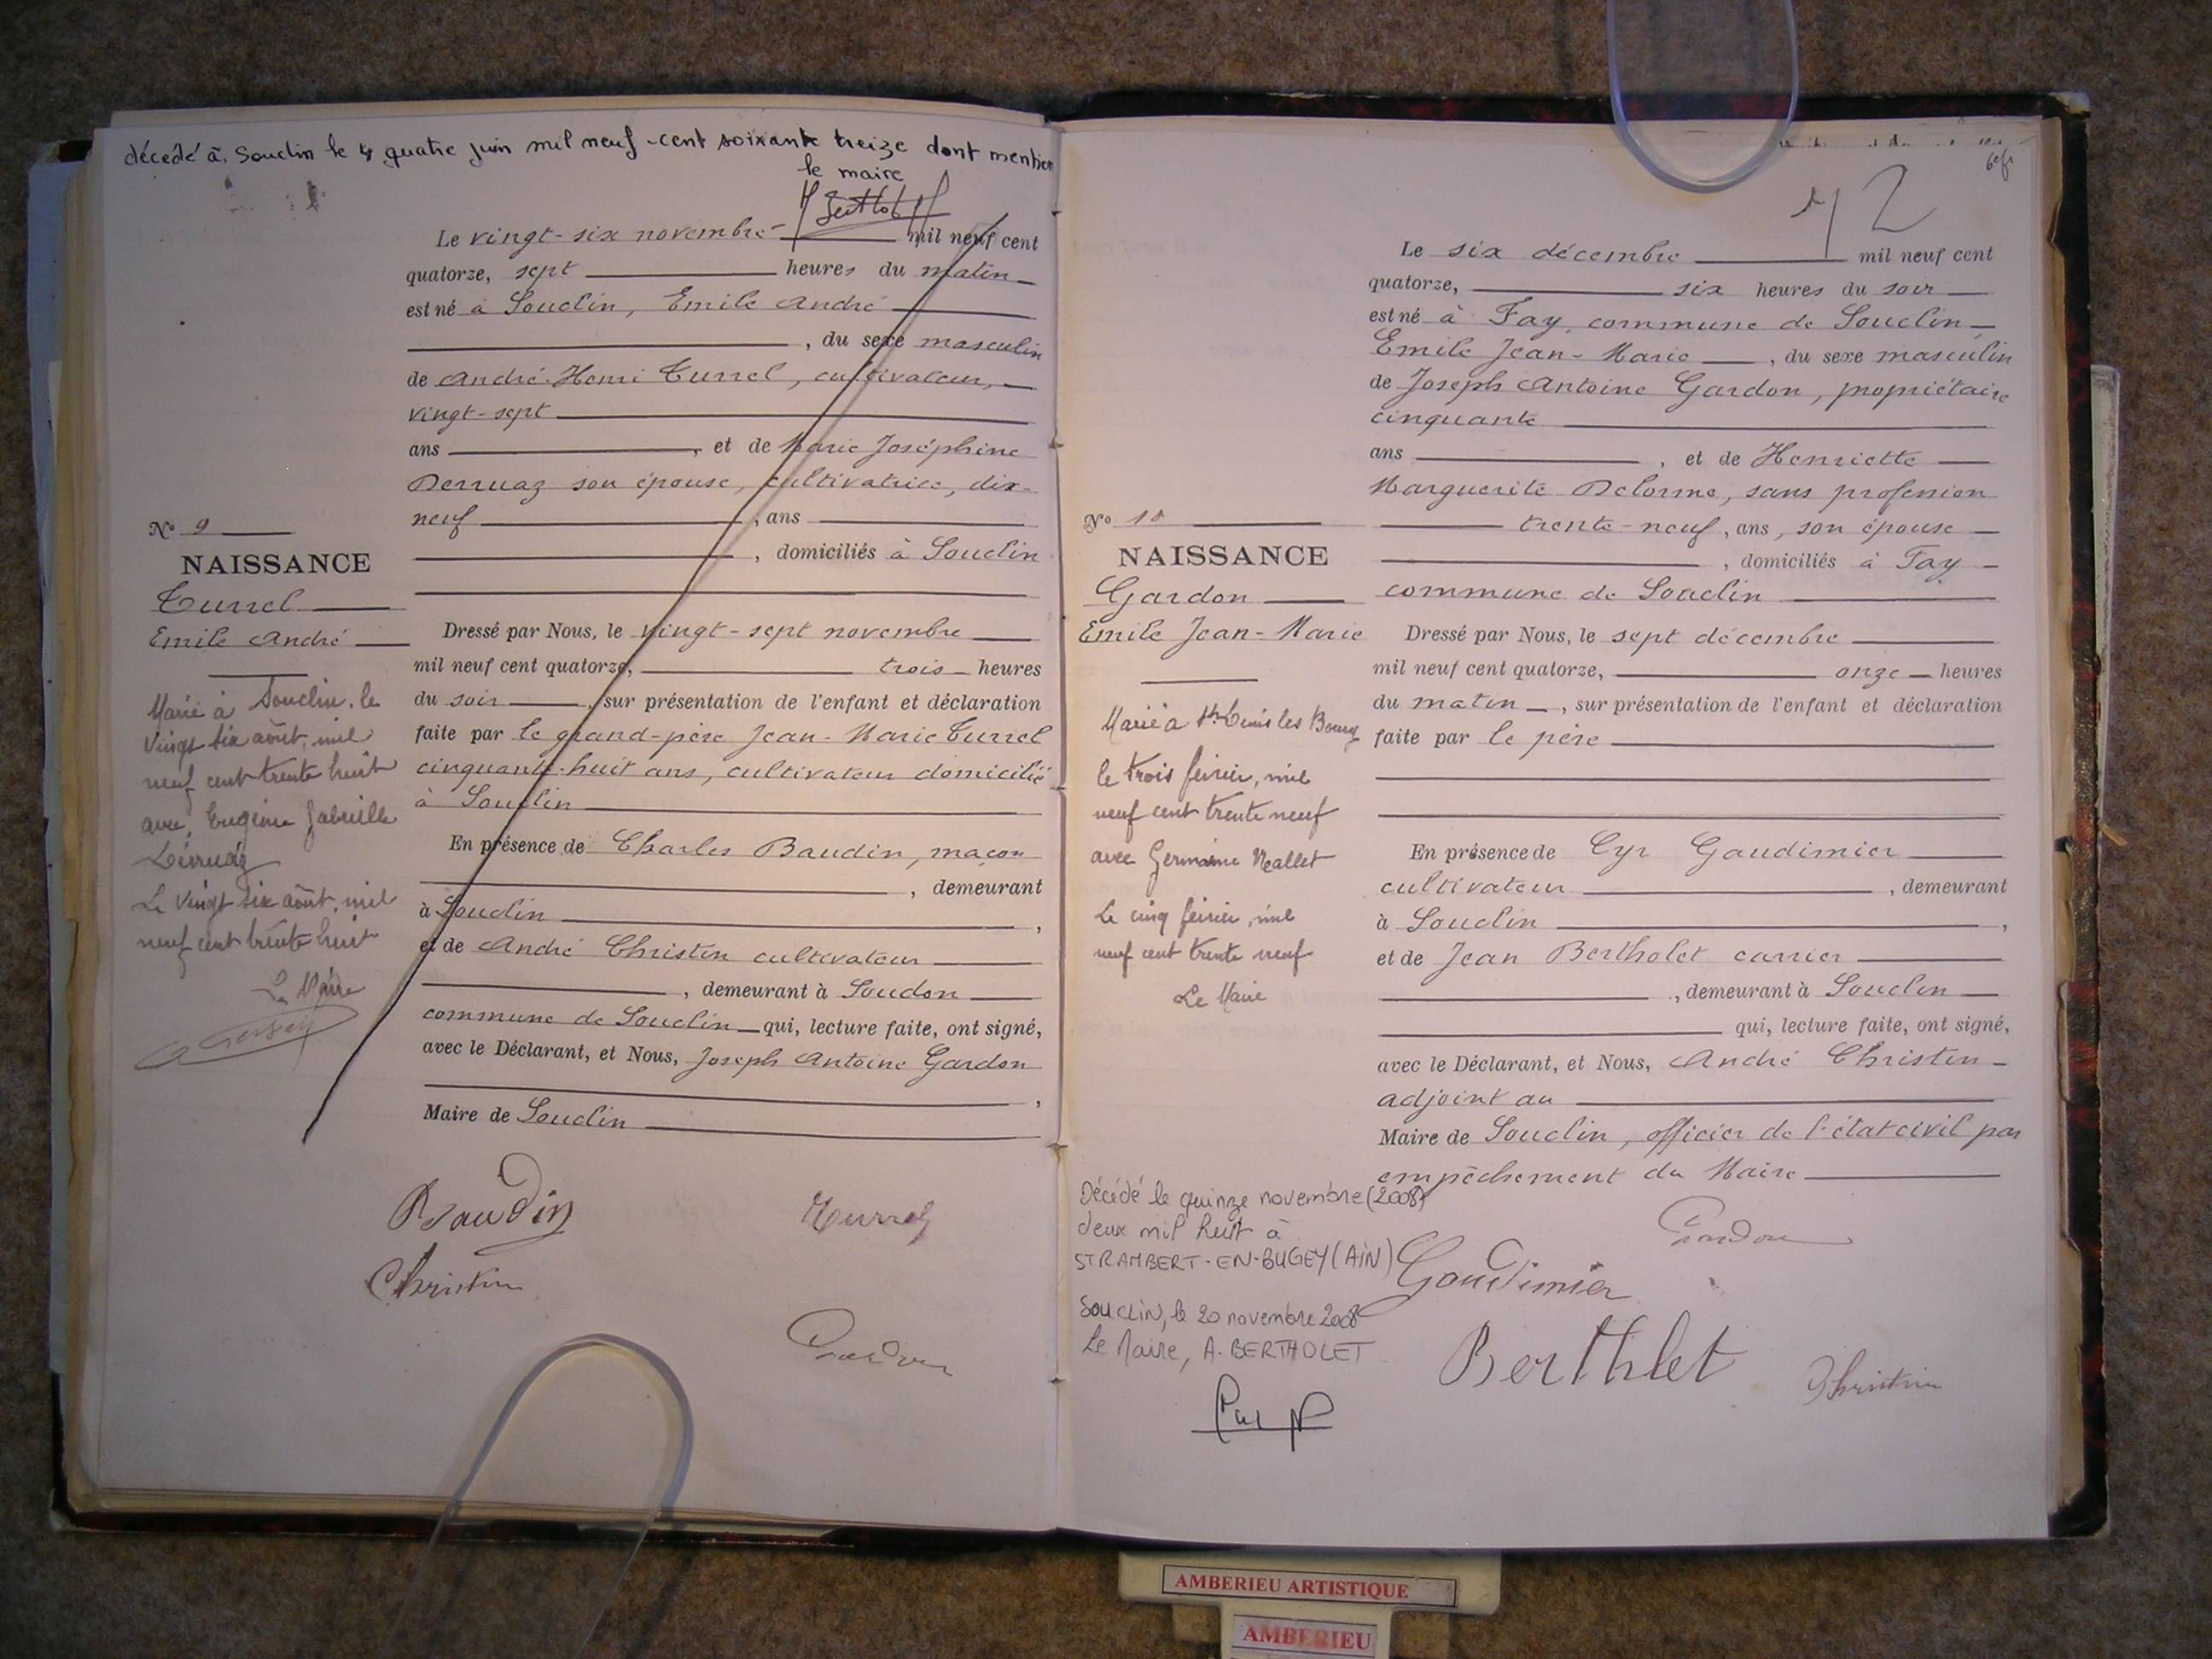 décédé à Souclin le 4 quatre juin mil neuf-cent soixante treize dont mention
le maire
Le vingt-six novembre mil neuf cent
quatorze, sept heures du matin
est né à Souclin, Emile André
, du sexe masculin
de André-Henri Turrel, cultivateur,
vingt-sept
ans , et de Marie Joséphine
Derruaz son épouse, cultivatrice, dix-
neuf , ans
, domiciliés à Souclin
Dressé par Nous, le vingt-sept novembre
mil neuf cent quatorze, trois heures
du soir , sur présentation de l'enfant et déclaration
faite par le grand-père Jean-Marie Turrel
cinquante-huit ans, cultivateur domicilié
à Souclin
En présence de Charles Baudin, maçon
, demeurant
à Souclin ,
et de André Christin cultivateur
, demeurant à Soudon
commune de Souclin qui, lecture faite, ont signé,
avec le Déclarant, et Nous, Joseph Antoine Gardon
,
Maire de Souclin
Baudin Turrel
Christin
Gardon
N° 9
NAISSANCE
Turrel
Emile André
Marié à Souclin, le
vingt six août, mil
neuf cent trente huit
avec, Eugénie Gabrielle
Dérruaz
Le vingt six août, mil
neuf cent trente huit
Le Maire
72
Le six décembre mil neuf cent
quatorze, six heures du soir
est né à Fay, commune de Souclin
Emile Jean-Marie , du sexe masculin
de Joseph Antoine Gardon, propriétaire
cinquante
ans , et de Henriette
Marguerite Delorme, sans profession
trente-neuf, ans, son épouse
, domiciliés à Fay
commune de Souclin
Dressé par Nous, le sept décembre
mil neuf cent quatorze, onze heures
du matin , sur présentation de l'enfant et déclaration
faite par le père
En présence de Cyr Gaudimier
cultivateur , demeurant
à Souclin ,
et de Jean Bertholet carrier
, demeurant à Souclin
qui, lecture faite, ont signé,
avec le Déclarant, et Nous, André Christin
adjoint au
Maire de Souclin, officier de l'état civil par
empêchement du Maire
Gardon
Gaudimier
Berthlet Christin
N° 10
NAISSANCE
Gardon
Emile Jean-Marie
Marié à St Denis les Bourg
le trois février, mil
neuf cent trente neuf
avec Germaine Mallet
Le cinq février, mil
neuf cent trente neuf
Le Maire
Décédé le quinze novembre (2008)
deux mil huit à
ST RAMBERT-EN-BUGEY (AIN)
SOUCLIN, le 20 novembre 2008
Le Maire, A. BERTHOLET
AMBERIEU ARTISTIQUE
AMBERIEU